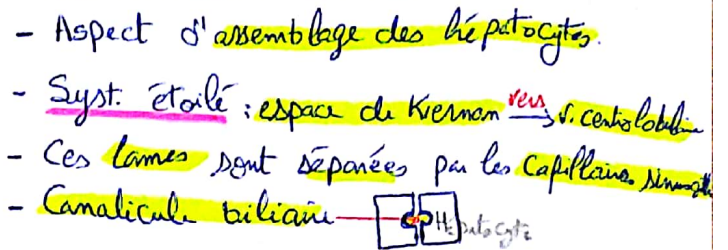 - Aspect d'assemblage des hépatocytes.
- Syst. étoilé : espace de Kiernan vers → v. centrolobulaire
- Ces lames sont séparées par les Capillaires
- Canalicule biliaire — Hépatocyte